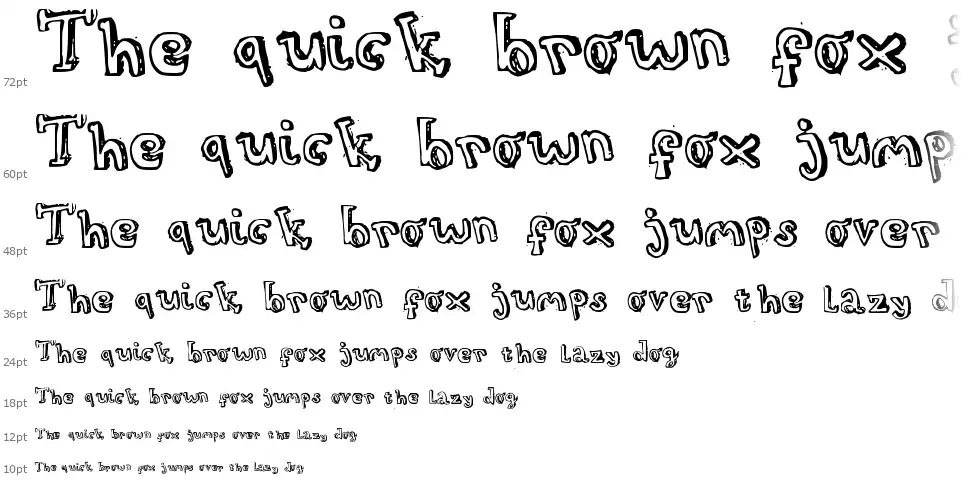 72pt The quick brown fox
60pt The quick brown fox jump
48pt The quick brown fox jumps over
36pt The quick brown fox jumps over the lazy d
24pt The quick brown fox jumps over the lazy dog
18pt The quick brown fox jumps over the lazy dog
12pt The quick brown fox jumps over the lazy dog
10pt The quick brown fox jumps over the lazy dog